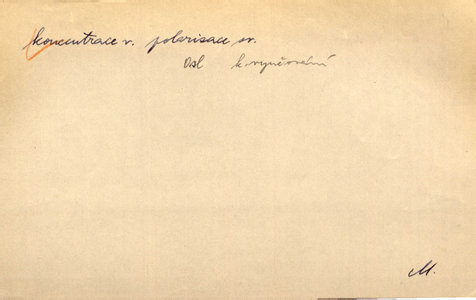 koncentrace v. polarisace sv.
Osl k vyučování
M.